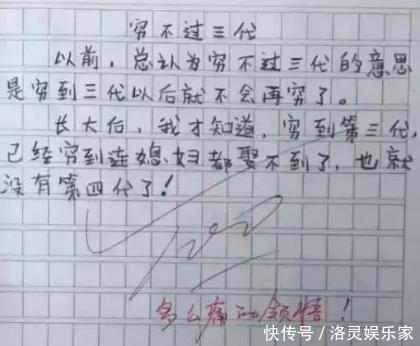 穷不过三代
以前，总认为穷不过三代的意思
是穷到三代以后就不会再穷了。
长大后，我才知道，穷到第三代，
已经穷到连媳妇都娶不到了，也就
没有第四代了！
100
多么痛的领悟！
快传号/洛灵娱乐家